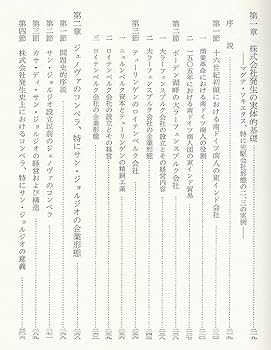 第一章 株式会社発生の実体的基礎
――マグナ・ソキエタス、特に先駆会社形態の二、三の実例――
序説
第一節 十六世紀初頭における南ドイツ商人の東インド会社
一 商業革命における南ドイツ商人の役割
二 一五〇五年における南ドイツ商人団の東インド貿易
第二節 ボーデン湖畔の大ラーフェンスブルク会社
一 大ラーフェンスブルク会社の設立とその経営内容
二 大ラーフェンスブルク会社の企業形態
第三節 テューリンゲンのロイテンベルク会社
一 ニュルンベルク資本とテューリンゲンの精銅工業
二 ロイテンベルク会社の設立とその経営
三 ロイテンベルク会社の企業形態
第二章 ジェノヴァのコンペラ、特にサン・ジョルジオの企業形態
第一節 問題史的序説
第二節 サン・ジョルジオ設立以前のジェノヴァのコンペラ
第三節 カサ・ディ・サン・ジョルジオの経営および構造
第四節 株式会社発生史上におけるコンペラ、特にサン・ジョルジオの意義